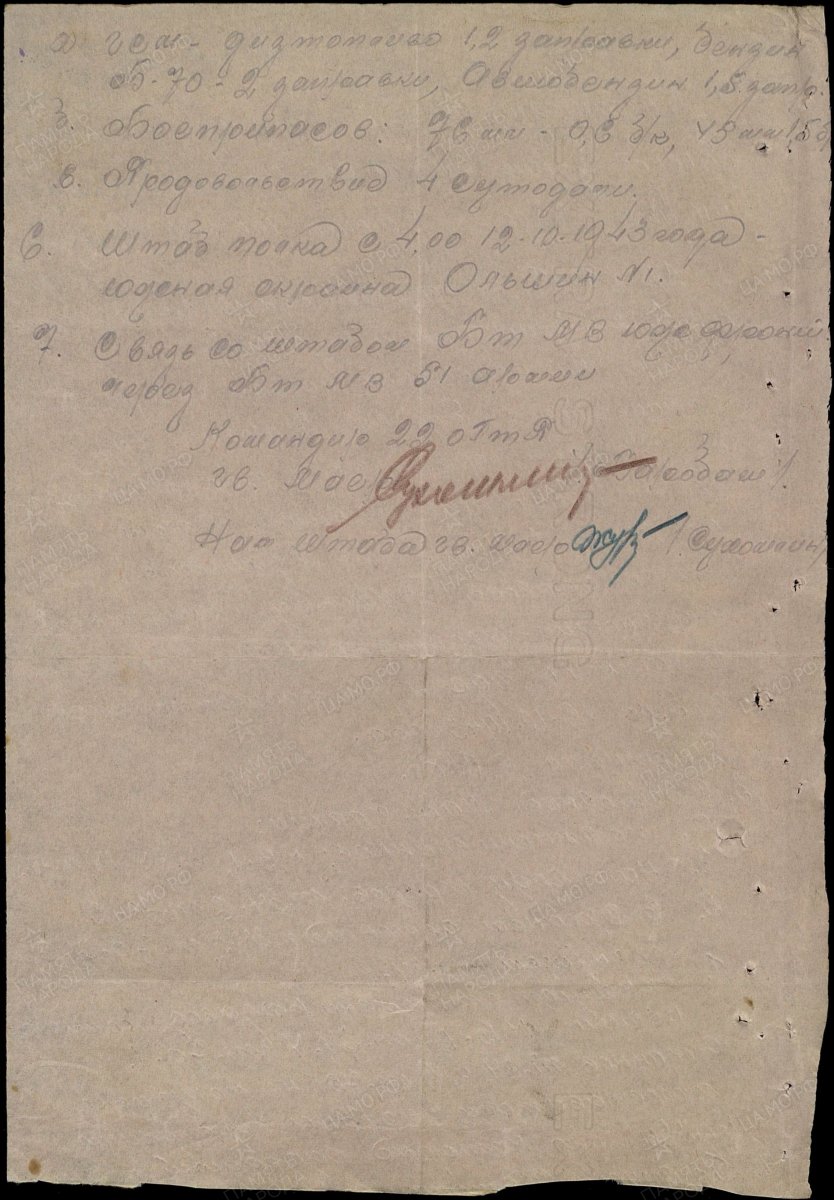 а) гсм - дизтопливо 1,2 заправки, бензин
Б-70 - 2 заправки, Авиобензин 1,5 запр.
Боеприпасов: 76 мм - 0,6 б/к, 45 мм 1,5
в. Продовольствие 4 сутодачи.
6. Штаб полка с 4.00 12.10.1943 года -
южная окраина Ольшин №1.
7. Связь со штабом БТ МВ
через БТ МВ 51 армии
Командир 22 оГтП
гв. Майор
Нач штаба гв. майор /Сухомлин/
ПАМЯТЬ НАРОДА
ЦАМО.РФ